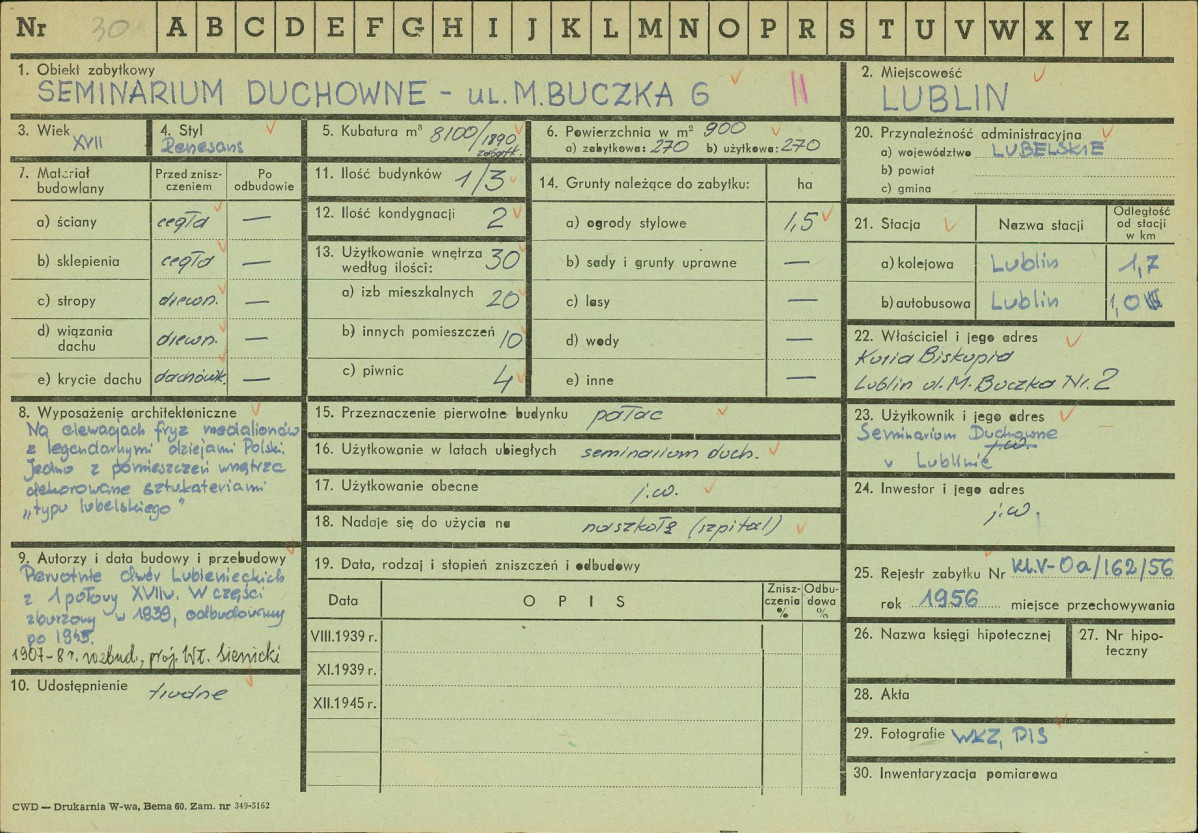 Nr 30 A B C D E F G H I J K L M N O P R S T U V W X Y Z
1. Obiekt zabytkowy
SEMINARIUM DUCHOWNE - UL. M. BUCZKA 6 II
2. Miejscowość
LUBLIN
3. Wiek
XVII
4. Styl
Renesans
5. Kubatura m³ 8100/1890
zabytk.
6. Powierzchnia w m² 900
a) zabytkowa: 270 b) użytkowa: 270
7. Materiał budowlany
Przed zniszczeniem
Po odbudowie
a) ściany cegła —
b) sklepienia cegła —
c) stropy drewn. —
d) wiązania dachu drewn. —
e) krycie dachu dachówk. —
8. Wyposażenie architektoniczne
Na elewacjach fryz medalionów
z legendarnymi dziejami Polski.
Jedno z pomieszczeń wnętrza
dekorowane sztukateriami
„typu lubelskiego"
9. Autorzy i data budowy i przebudowy
Pierwotnie dwór Lubienieckich
z 1 połowy XVII w. W części
zburzony w 1939, odbudowany
po 1945.
1907-8 r. rozbud., proj. Wł. Sienicki
10. Udostępnienie trudne
11. Ilość budynków 1/3
12. Ilość kondygnacji 2
13. Użytkowanie wnętrza według ilości: 30
a) izb mieszkalnych 20
b) innych pomieszczeń 10
c) piwnic 4
14. Grunty należące do zabytku: ha
a) ogrody stylowe 1,5
b) sady i grunty uprawne —
c) lasy —
d) wody —
e) inne —
15. Przeznaczenie pierwotne budynku pałac
16. Użytkowanie w latach ubiegłych seminarium duch.
17. Użytkowanie obecne j.w.
18. Nadaje się do użycia na na szkołę (szpital)
19. Data, rodzaj i stopień zniszczeń i odbudowy
Data OPIS Zniszczenia % Odbudowa %
VIII.1939 r.
XI.1939 r.
XII.1945 r.
20. Przynależność administracyjna
a) województwo LUBELSKIE
b) powiat
c) gmina
21. Stacja Nazwa stacji Odległość od stacji w km
a) kolejowa Lublin 1,7
b) autobusowa Lublin 1,0
22. Właściciel i jego adres
Kuria Biskupia
Lublin ul. M. Buczka Nr. 2
23. Użytkownik i jego adres
Seminarium Duchowne
j.w.
w Lublinie
24. Inwestor i jego adres
j.w.
25. Rejestr zabytku Nr Kl.V-Oa/162/56
rok 1956 miejsce przechowywania
26. Nazwa księgi hipotecznej
27. Nr hipoteczny
28. Akta
29. Fotografie WKZ, DIS
30. Inwentaryzacja pomiarowa
CWD — Drukarnia W-wa, Bema 60. Zam. nr 349-5162